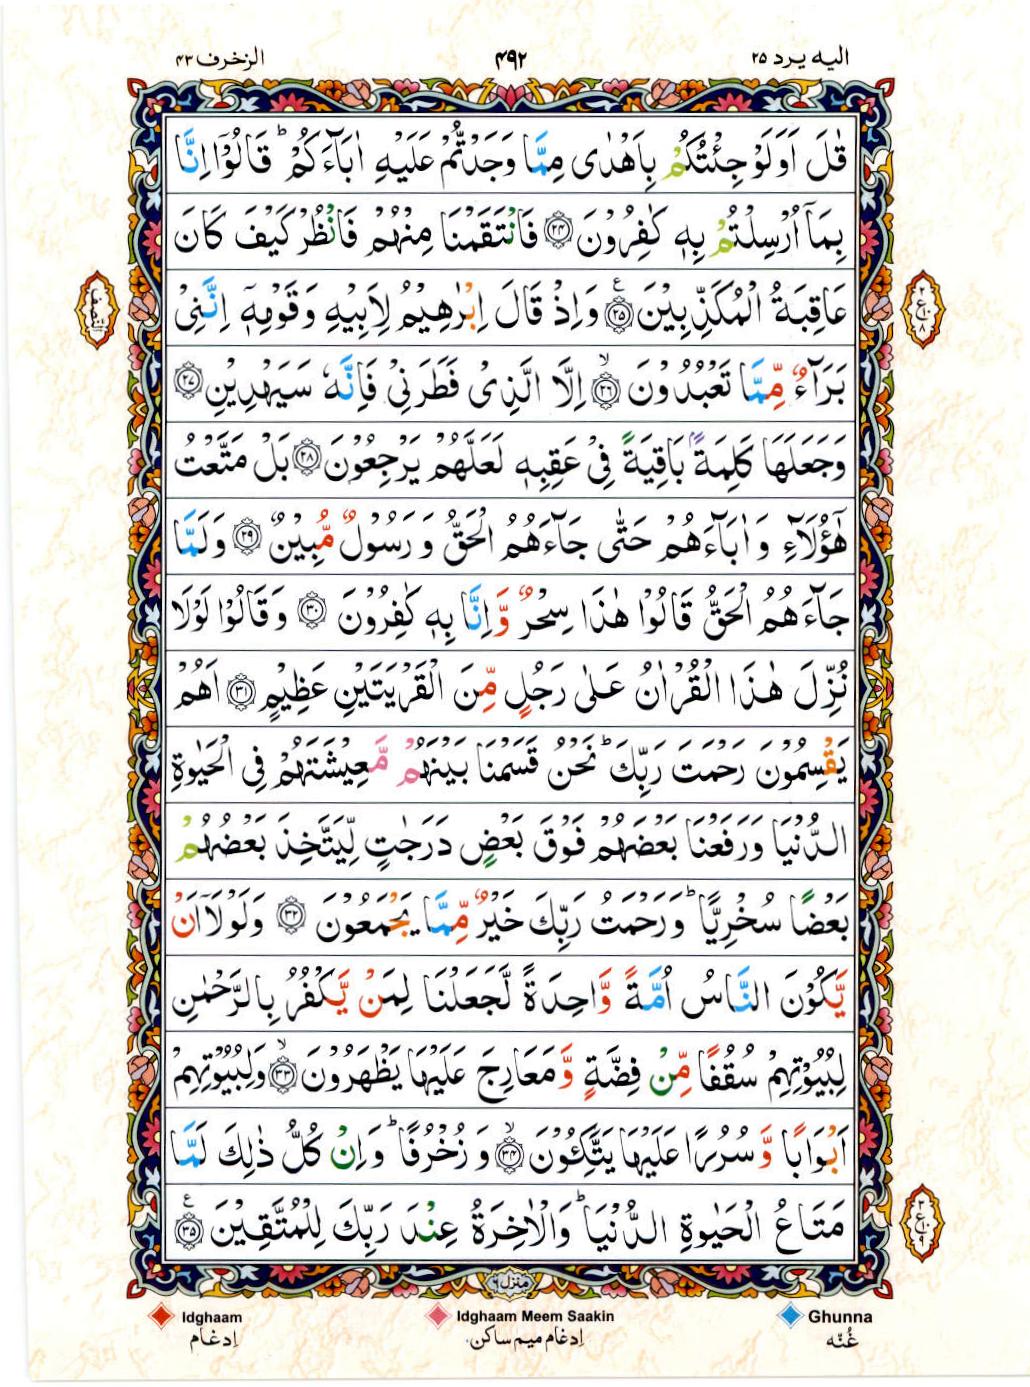 الیه یرد ۲۵
۴۹۲
الزخرف ۴۳
قٰلَ اَوَلَوْ جِئْتُكُمْ بِاَهْدٰى مِمَّا وَجَدْتُّمْ عَلَيْهِ اٰبَآءَكُمْ ؕ قَالُوْۤا اِنَّا
بِمَاۤ اُرْسِلْتُمْ بِهٖ كٰفِرُوْنَ ﴿۲۴﴾ فَانْتَقَمْنَا مِنْهُمْ فَانْظُرْ كَيْفَ كَانَ
عَاقِبَةُ الْمُكَذِّبِيْنَ ﴿۲۵﴾ ع وَاِذْ قَالَ اِبْرٰهِيْمُ لِاَبِيْهِ وَقَوْمِهٖۤ اِنَّنِيْ
بَرَآءٌ مِّمَّا تَعْبُدُوْنَ ﴿۲۶﴾ ۙ اِلَّا الَّذِيْ فَطَرَنِيْ فَاِنَّهٗ سَيَهْدِيْنِ ﴿۲۷﴾
وَجَعَلَهَا كَلِمَةًۢ بَاقِيَةً فِيْ عَقِبِهٖ لَعَلَّهُمْ يَرْجِعُوْنَ ﴿۲۸﴾ بَلْ مَتَّعْتُ
هٰۤؤُلَآءِ وَاٰبَآءَهُمْ حَتّٰى جَآءَهُمُ الْحَقُّ وَرَسُوْلٌ مُّبِيْنٌ ﴿۲۹﴾ وَلَمَّا
جَآءَهُمُ الْحَقُّ قَالُوْا هٰذَا سِحْرٌ وَّاِنَّا بِهٖ كٰفِرُوْنَ ﴿۳۰﴾ وَقَالُوْا لَوْلَا
نُزِّلَ هٰذَا الْقُرْاٰنُ عَلٰى رَجُلٍ مِّنَ الْقَرْيَتَيْنِ عَظِيْمٍ ﴿۳۱﴾ اَهُمْ
يَقْسِمُوْنَ رَحْمَتَ رَبِّكَ ؕ نَحْنُ قَسَمْنَا بَيْنَهُمْ مَّعِيْشَتَهُمْ فِى الْحَيٰوةِ
الدُّنْيَا وَرَفَعْنَا بَعْضَهُمْ فَوْقَ بَعْضٍ دَرَجٰتٍ لِّيَتَّخِذَ بَعْضُهُمْ
بَعْضًا سُخْرِيًّا ؕ وَرَحْمَتُ رَبِّكَ خَيْرٌ مِّمَّا يَجْمَعُوْنَ ﴿۳۲﴾ وَلَوْلَاۤ اَنْ
يَّكُوْنَ النَّاسُ اُمَّةً وَّاحِدَةً لَّجَعَلْنَا لِمَنْ يَّكْفُرُ بِالرَّحْمٰنِ
لِبُيُوْتِهِمْ سُقُفًا مِّنْ فِضَّةٍ وَّمَعَارِجَ عَلَيْهَا يَظْهَرُوْنَ ﴿۳۳﴾ ۙ وَلِبُيُوْتِهِمْ
اَبْوَابًا وَّسُرُرًا عَلَيْهَا يَتَّكِـُٔوْنَ ﴿۳۴﴾ ۙ وَزُخْرُفًا ؕ وَاِنْ كُلُّ ذٰلِكَ لَمَّا
مَتَاعُ الْحَيٰوةِ الدُّنْيَا ؕ وَالْاٰخِرَةُ عِنْدَ رَبِّكَ لِلْمُتَّقِيْنَ ﴿۳۵﴾ ع
منزل ۶
Idghaam
اِدغام
Idghaam Meem Saakin
اِدغام میم ساکن
Ghunna
غُنّه